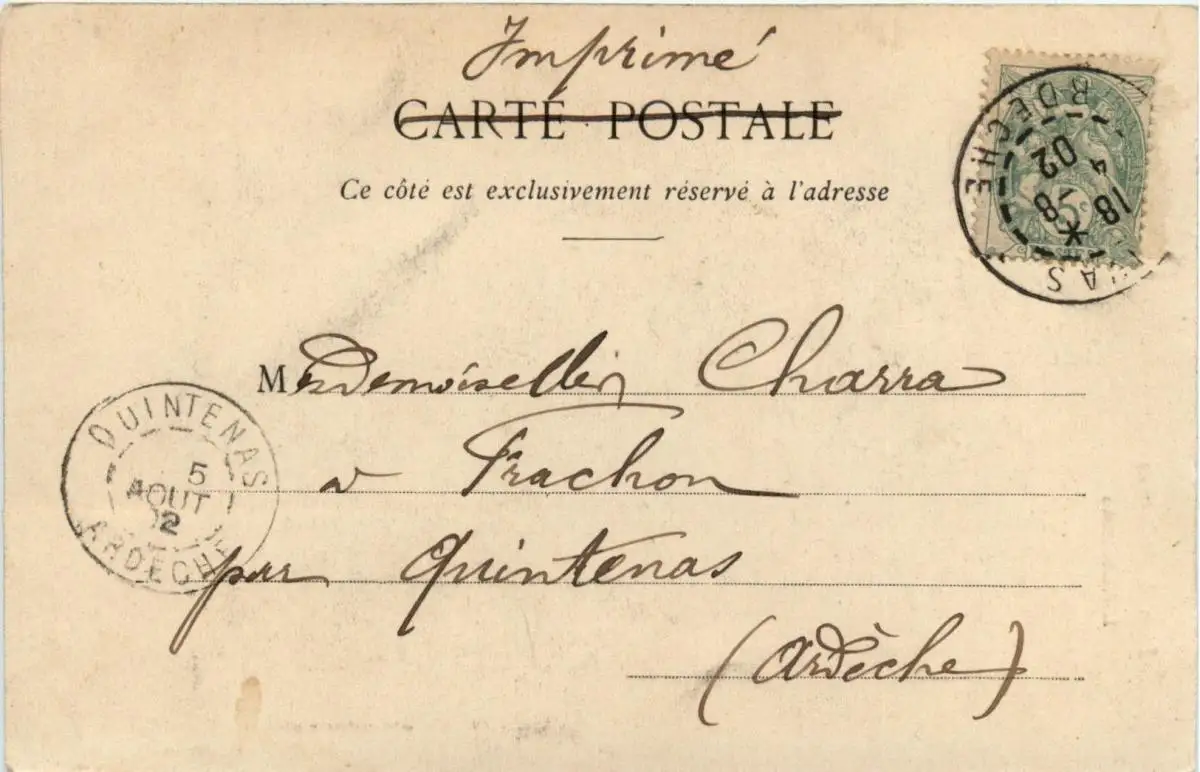 Imprimé
CARTE POSTALE
Ce côté est exclusivement réservé à l'adresse
Mesdemoiselles Charra
a Frachon
par Quintenas
(Ardèche)
QUINTENAS
5
AOUT
02
ARDECHE
ARDECHE
18
4
8
02
5c